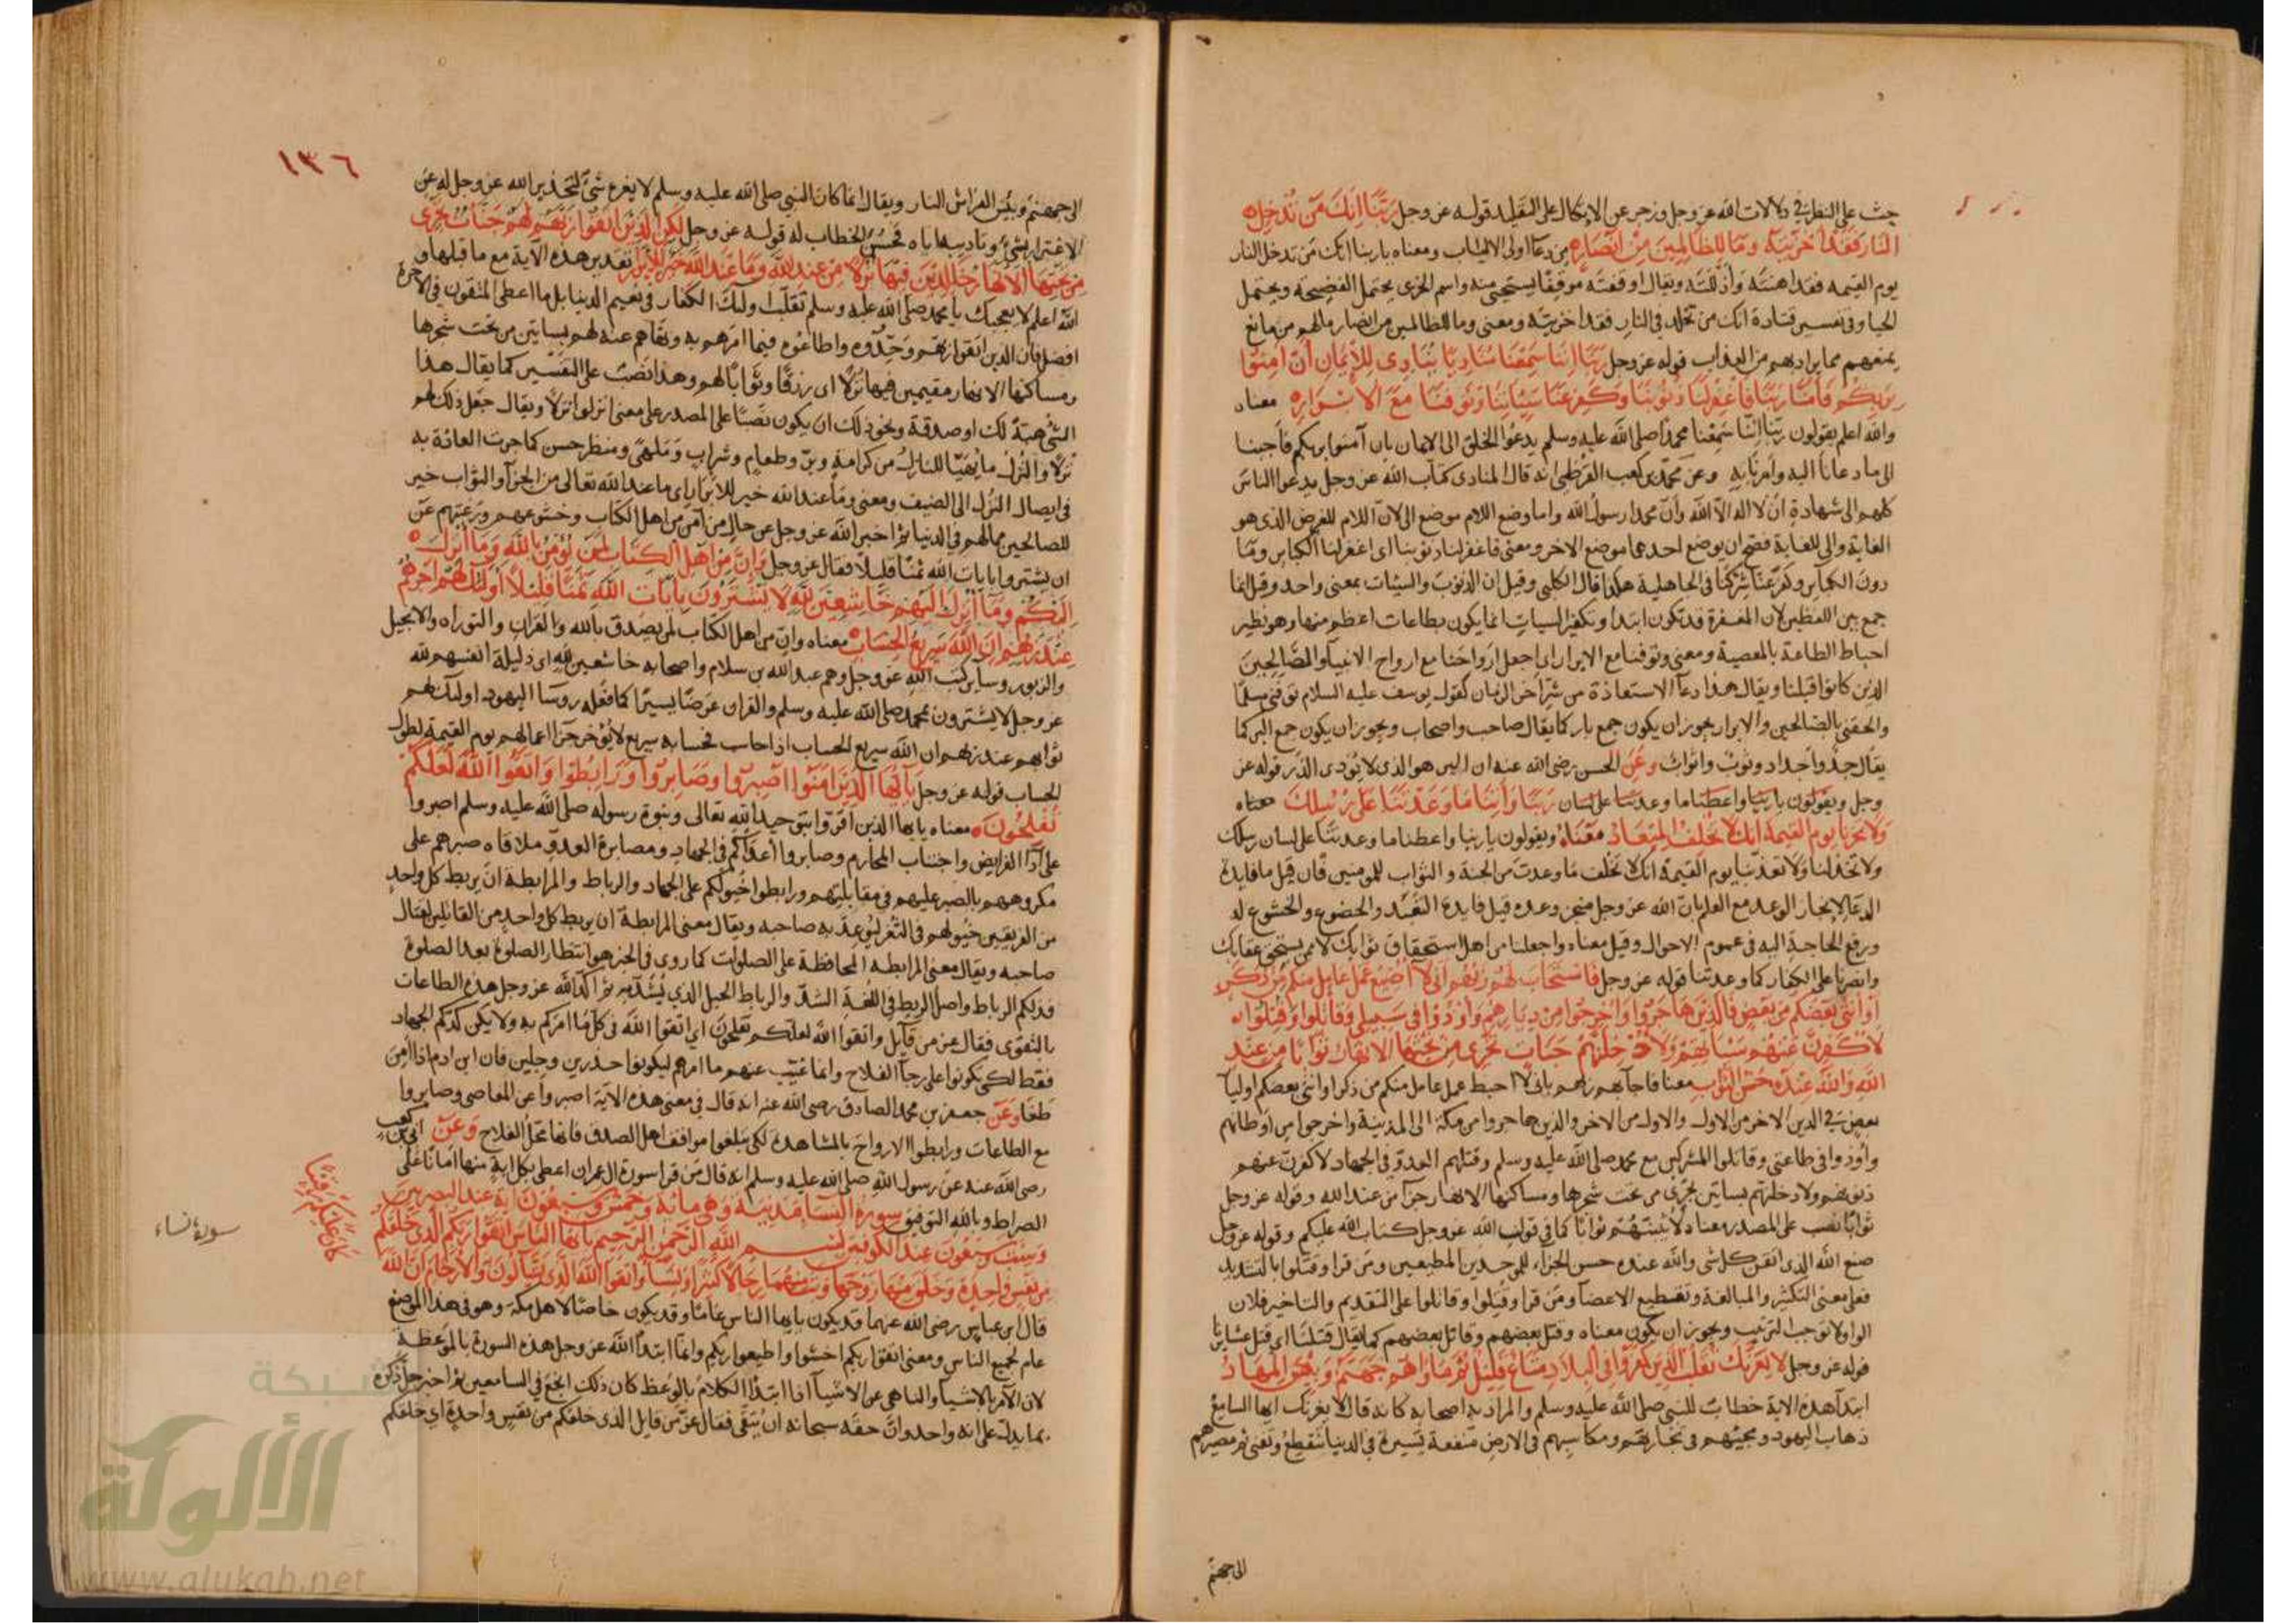 حث على النظر في دلالات الله عز وجل وزجر عن الاتكال على التقليد قوله عز وجل ربنا انك من تدخل
النار فقد اخزيته وما للظالمين من انصاره من دعا اولى الالباب ومعناه ياربنا انك من تدخل النار
يوم القيمه فقد اهنته واذللته ويقال اوقفته موقفا يستحيى منه واسم الخزى يحتمل الفضيحة ويحتمل
الحيا وفى تفسير قتادة انك من تخلد فى النار فقد اخزيته ومعنى وما للظالمين من انصار مالهم من مانع
يمنعهم مما يراد بهم من العذاب قوله عز وجل ربنا اننا سمعنا مناديا ينادى للايمان ان امنوا
بربكم فامنا ربنا فاغفر لنا ذنوبنا وكفر عنا سيئاتنا وتوفنا مع الابراره معناه
والله اعلم يقولون ربنا اننا سمعنا محمدا صلى الله عليه وسلم يدعوا الخلق الى الايمان بان آمنوا بربكم فاجبنا
الى ما دعانا اليه وامرنا به وعن محمد بن كعب القرظى انه قال المنادى كتاب الله عز وجل يدعوا الناس
كلهم الى شهادة ان لا اله الا الله وان محمدا رسول الله واما وضع اللام موضع الى لان اللام للغرض الذى هو
الغاية والى للغاية فصح ان يوضع احدهما موضع الاخر ومعنى فاغفر لنا ذنوبنا اى اغفر لنا الكبائر وما
دون الكبائر وكفر عنا شركنا فى الجاهلية هكذا قال الكلبى وقيل ان الذنوب والسيئات بمعنى واحد وقيل انما
جمع بين اللفظين لان المغفرة قد تكون ابتداء وتكفير السيات انما يكون بطاعات اعظم منها وهو نظير
احباط الطاعة بالمعصية ومعنى وتوفنا مع الابرار اى اجعل ارواحنا مع ارواح الانبيآ والصالحين
الذين كانوا قبلنا ويقال هذا دعآ الاستعاذة من شر اخر الزمان كقول يوسف عليه السلام توفنى مسلما
والحقنى بالصالحين والابرار يجوز ان يكون جمع بار كما يقال صاحب واصحاب ويجوز ان يكون جمع البر كما
يقال جد واجداد وثوب واثواب وعن الحسن رضى الله عنه ان البر هو الذى لا يؤذى الذر قوله عز
وجل ويقولون ياربنا واعطنا ما وعدتنا على لسان ربنا وآتنا ما وعدتنا على رسلك معناه
ولا تخزنا يوم القيمة انك لا تخلف الميعاد معناه ويقولون ياربنا واعطنا ما وعدتنا على لسان رسلك
ولا تخذلنا ولا تعذبنا يوم القيمة انك لا تخلف ما وعدت من الجنة والثواب للمومنين فان قيل ما فايدة
الدعآ لانجاز الوعد مع العلم بان الله عز وجل منجز وعده قيل فايدة التعبد والخضوع والخشوع له
ورفع الحاجة اليه فى عموم الاحوال وقيل معناه واجعلنا من اهل استحقاق ثوابك لا ممن يستحق عقابك
وانصرنا على الكفار كما وعدتنا قوله عز وجل فاستجاب لهم ربهم انى لا اضيع عمل عامل منكم من ذكر
او انثى بعضكم من بعض فالذين هاجروا واخرجوا من ديارهم واوذوا فى سبيلى وقاتلوا وقتلوا
لاكفرن عنهم سيئاتهم ولادخلنهم جنات تجرى من تحتها الانهار ثوابا من عند
الله والله عنده حسن الثواب معنا فاجابهم ربهم بانى لا احبط عمل عامل منكم من ذكر او انثى بعضكم اوليآ
بعض فى الدين الاخر من الاول والاول من الاخر والذين هاجروا من مكة الى المدينة واخرجوا من اوطانهم
واوذوا فى طاعتى وقاتلوا المشركين مع محمد صلى الله عليه وسلم وقتلهم العدو فى الجهاد لاكفرن عنهم
ذنوبهم ولادخلنهم بساتين تجرى من تحت شجرها ومساكنها الانهار جزآ من عند الله وقوله عز وجل
ثوابا نصب على المصدر معناه لاثيبنهم ثوابا كما فى قوله الله عز وجل كتاب الله عليكم وقوله عز وجل
صنع الله الذى اتقن كل شى والله عنده حسن الجزاء للموحدين المطيعين ومن قرا وقتلوا بالتشديد
فعلى معنى التكثير والمبالغة وتقطيع الاعضآ ومن قرا وقتلوا وقاتلوا على التقديم والتاخير فلان
الواو لا توجب الترتيب ويجوز ان يكون معناه وقتل بعضهم وقاتل بعضهم كما يقال قتلنا اى قتل عشايرنا
قوله عز وجل لا يغرنك تقلب الذين كفروا فى البلاد متاع قليل ثم ماواهم جهنم وبئس المهاد
ابتدآ هذه الاية خطاب للنبى صلى الله عليه وسلم والمراد به اصحابه كانه قال لا يغرنك ايها السامع
ذهاب اليهود ومجيئهم فى تجاراتهم ومكاسبهم فى الارض منفعة يسيرة فى الدنيا تنقطع وتفنى ثم مصيرهم
الى جهنم
١٣٦
الى جهنم وبئس الفراش النار ويقال انما كان النبى صلى الله عليه وسلم لا يغره شئ لتحذير الله عز وجل له عن
الاغترار بشئ وتاديبه اياه فحسن الخطاب له قوله عز وجل لكن الذين اتقوا ربهم لهم جنات تجرى
من تحتها الانهار خالدين فيها نزلا من عند الله وما عند الله خير للابرار تقدير هذه الآية مع ما قبلها و
الله اعلم لا يعجبك يا محمد صلى الله عليه وسلم تقلب اولئك الكفار فى نعيم الدنيا بل ما اعطى المتقون فى الاخرة
افضل فان الذين اتقوا ربهم وحدوه واطاعوه فيما امرهم به ونهاهم عنه لهم بساتين من تحت شجرها
ومساكنها الانهار مقيمين فيها نزلا اى رزقا وثوابا لهم وهذا نصب على التفسير كما يقال هذا
الشئ هبة لك او صدقة ونحو ذلك ان يكون نصبا على المصدر على معنى انزلوا نزلا ويقال جعل ذلك لهم
نزلا والنزل ما يهيا للنازل من كرامة وبر وطعام وشراب وملهى ومنظر حسن كما جرت العادة به
فى ايصال النزل الى الضيف ومعنى وما عند الله خير للابرار اى ما عند الله تعالى من الجزآ والثواب خير
للصالحين مما لهم فى الدنيا ثم اخبر الله عز وجل عن حال من آمن من اهل الكتاب وخشوعهم ورغبتهم عن
ان يشتروا بايات الله ثمنا قليلا فقال عز وجل وان من اهل الكتاب لمن يؤمن بالله وما انزل
اليكم وما انزل اليهم خاشعين لله لا يشترون بايات الله ثمنا قليلا اولئك لهم اجرهم
عند ربهم ان الله سريع الحساب معناه وان من اهل الكتاب لمن يصدق بالله والقران والتوراه والانجيل
والزبور وساير كتب الله عز وجل وهم عبد الله بن سلام واصحابه خاشعين لله اى ذليلة انفسهم لله
عز وجل لا يشترون بمحمد صلى الله عليه وسلم والقران عرضا يسيرا كما فعله روسآ اليهود اولئك لهم
ثوابهم عند ربهم ان الله سريع الحساب اذا حاسب فحسابه سريع لا يؤخر جزآ اعمالهم يوم القيمة لطول
الحساب قوله عز وجل يا ايها الذين آمنوا اصبروا وصابروا ورابطوا واتقوا الله لعلكم
تفلحون معناه يا يها الذين اقروا بتوحيد الله تعالى ونبوة رسوله صلى الله عليه وسلم اصبروا
على ادآ الفرايض واجتناب المحارم وصابروا اعدآكم فى الجهاد ومصابرة العدو ملاقاه صبرهم على
مكروههم بالصبر عليهم فى مقابلتهم ورابطوا خيولكم على الجهاد والرباط والمرابطة ان يربط كل واحد
من الفريقين خيولهم فى الثغر ليوعد به صاحبه ويقال معنى المرابطة ان يربط كل واحد من القائلين لقتال
صاحبه ويقال معنى المرابطه المحافظة على الصلوات كما روى فى الخبر هو انتظار الصلوة بعد الصلوة
فذلكم الرباط واصل الربط فى اللغة الشد والرباط الحبل الذى يشد به ثم اكد الله عز وجل هذه الطاعات
بالتقوى فقال عز من قآيل واتقوا الله لعلكم تفلحون اى اتقوا الله فى كل ما امركم به ولا يكن كدكم الجهاد
فقط لكى يكونوا على رجآ الفلاح وانما غيب عنهم ما امرهم ليكونوا حذرين وجلين فان ابن ادم اذا امن
طغا وعن جعفر بن محمد الصادق رضى الله عنه انه قال فى معنى هذه الاية اصبروا عن المعاصى وصابروا
مع الطاعات ورابطوا الارواح بالمشاهدة لكى يبلغوا مواقف اهل الصدق فانها محل الفلاح وعن ابى بن كعب
رضى الله عنه عن رسول الله صلى الله عليه وسلم انه قال من قرا سورة ال عمران اعطى بكل اية منها امانا على
الصراط وبالله التوفيق سورة النسآ مدنية وهى مائة وخمس وسبعون آية عند البصريين
وست وسبعون عند الكوفيين بسم الله الرحمن الرحيم يا ايها الناس اتقوا ربكم الذى خلقكم
من نفس واحدة وخلق منها زوجها وبث منهما رجالا كثيرا ونسآ واتقوا الله الذى تسآلون به والارحام ان الله
كان عليكم رقيبا
سورة نساء
قال ابن عباس رضى الله عنهما قد يكون يا يها الناس عاما وقد يكون خاصا لاهل مكة وهو فى هذا الموضع
عام لجميع الناس ومعنى اتقوا ربكم اخشوا واطيعوا ربكم وانما ابتدآ الله عز وجل هذه السورة بالموعظة
لان الآمر بالاشيآ والناهى عن الاشيآ اذا ابتدآ الكلام بالوعظ كان ذلك انجع فى السامعين ثم اخبر جل ذكره
بما يدل على انه واحد وان حقه سبحانه ان يتقى فقال عز من قايل الذى خلقكم من نفس واحدة اى خلقكم
شبكة
الألوكة
www.alukah.net